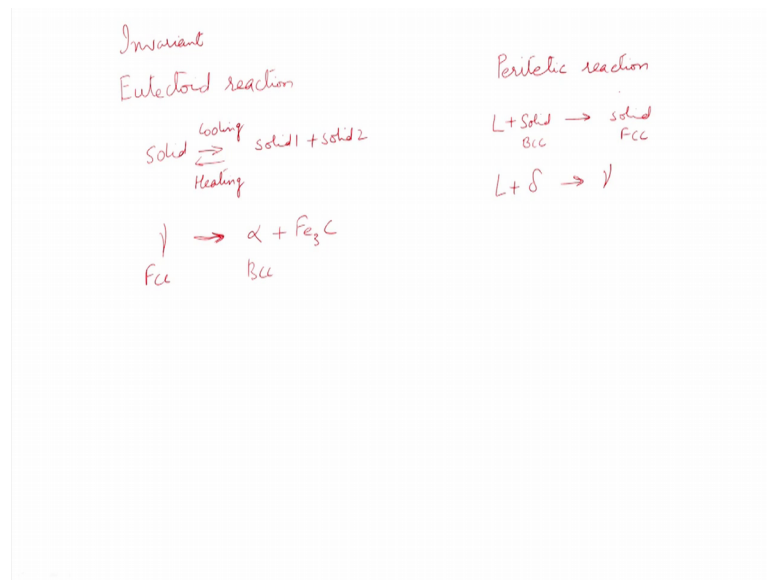 Invariant
Eutectoid reaction
Cooling
Solid ⇌ Solid1 + Solid2
Heating
γ → α + Fe₃C
FCC BCC
Peritetic reaction
L + Solid → Solid
BCC FCC
L + δ → γ